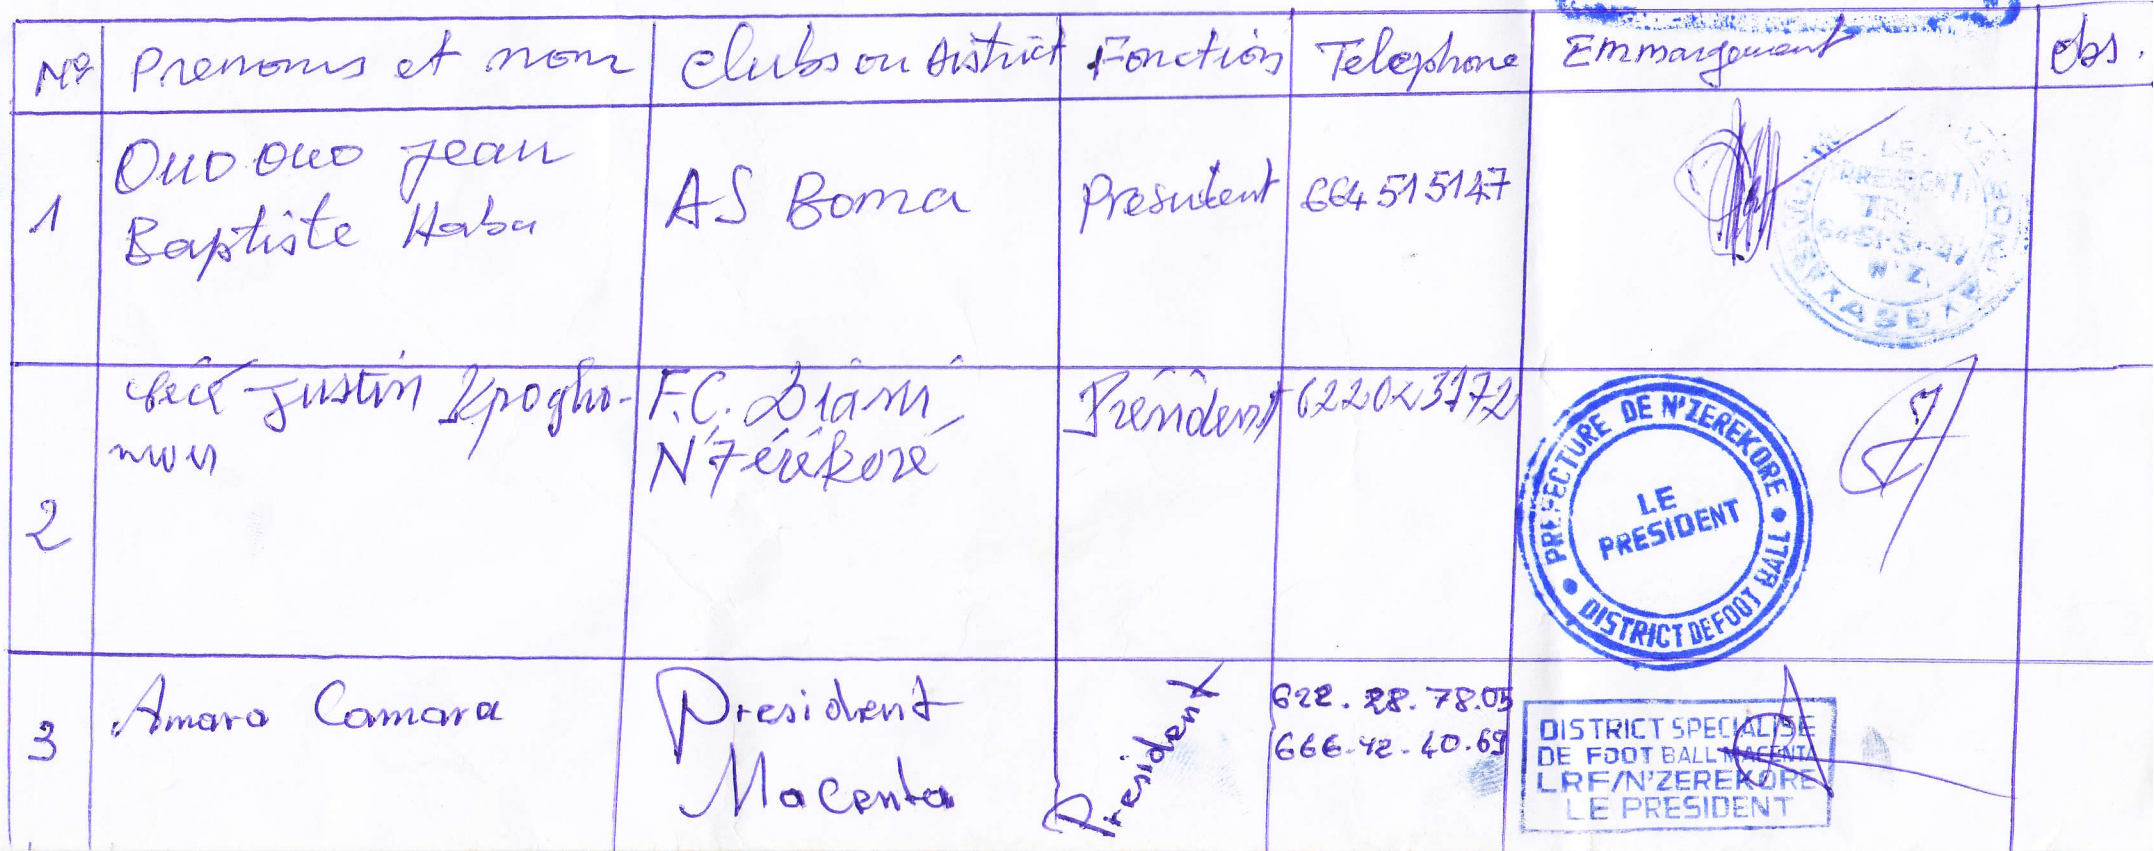 N° Prenoms et nom Clubs ou District Fonction Telephone Emmargement Obs.
1 Ouo Ouo Jean
Baptiste Haba
AS Boma
President
664515147
LE
PRESIDENT
N'Z.
2 Justin Kpogho-
mou
F.C. Diani
N'Zérékoré
Président
PREFECTURE DE N'ZEREKORE
DISTRICT DE FOOT BALL
LE
PRESIDENT
3 Amara Camara
President
Macenta
President
622.28.78.05
666-42-40.69
DISTRICT SPECIALISE
DE FOOT BALL MACENTA
LRF/N'ZEREKORE
LE PRESIDENT